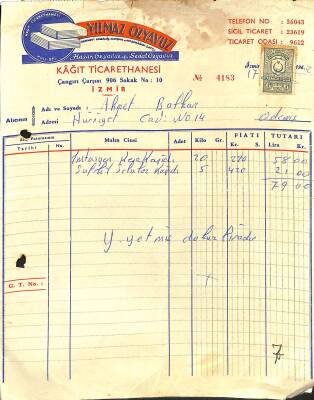 YILMAZ ÖZYAVUZ
Hasan Özyavuz ve Sedat Özyavuz
KÂĞIT TİCARETHANESİ
Çangırı Çarşısı 906 Sokak No : 10
İZMİR
TELEFON NO : 36043
SİCİL TİCARET : 23619
TİCARET ODASI : 9612
№ 4183
İzmir 17
Alıcının
Adı ve Soyadı : Ahmet Balkan
Adresi Hürriyet Cad: No 14 Ödemiş
Tarihi No. Malın Cinsi Adet Kilo Gr. FİATI Kr. S. TUTARI Lira Kr.
20 290 58 00
5 420 21 00
79 00
Y. yetmiş dokuz liradır
G. T. No. :